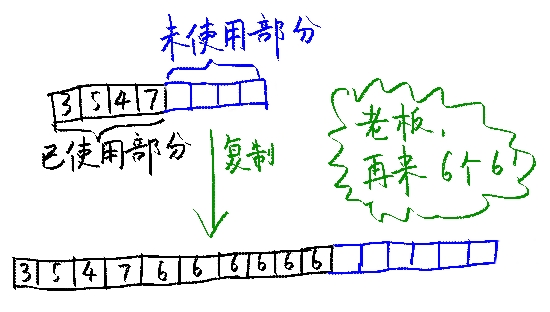 未使用部分
3 5 4 7
已使用部分
复制
老板,
再来6个6!
3 5 4 7 6 6 6 6 6 6